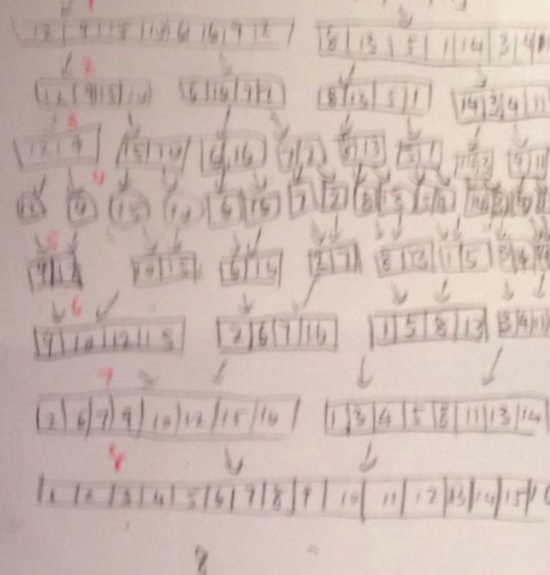 12 | 9 | 15 | 10 | 6 | 16 | 7 | 2 8 | 13 | 5 | 1 | 14 | 3 | 4
12 | 9 | 15 | 10 6 | 16 | 7 | 2 8 | 13 | 5 | 1 14 | 3 | 4 | 11
3
12 | 9 15 | 10 6 | 16 7 | 2 8 | 13 5 | 1 14 | 3 4 | 11
12 9 15 10 6 16 7 2 8 13 5
5
9 | 12 10 | 15 6 | 16 2 | 7 8 | 13 1 | 5
6
9 | 10 | 12 | 15 2 | 6 | 7 | 16 1 | 5 | 8 | 13 3 | 4 | 11
7
2 | 6 | 7 | 9 | 10 | 12 | 15 | 16 1 | 3 | 4 | 5 | 8 | 11 | 13 | 14
8
1 | 2 | 3 | 4 | 5 | 6 | 7 | 8 | 9 | 10 | 11 | 12 | 13 | 14 | 15
8